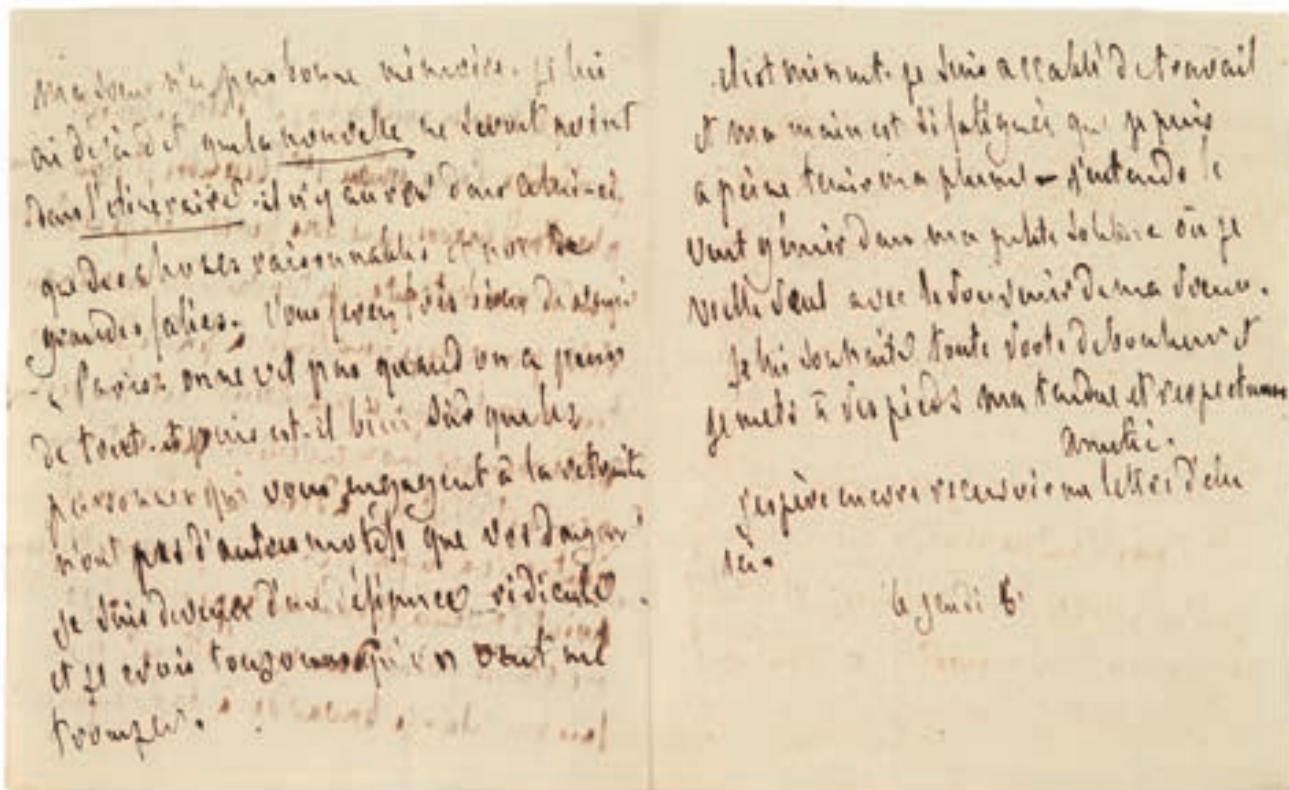 ma soeur n'a pas bonne mémoire. je lui
ai déjà dit que la nouvelle ne seroit point
dans l'itinéraire. il n'y aura dans celui-ci
que des choses raisonnables et point de
grandes folies. vous ferez très bien de
Paris on ne vit pas quand on a peur
de tout. et puis est-il bien sûr que les
personnes qui vous engagent à la retraite
n'ont pas d'autres motifs que vos dangers
je suis devenu d'une défiance ridicule
et je crois toujours qu'on veut me
tromper.
il est minuit. je suis accablé de travail
et ma main est si fatiguée que je puis
à peine tenir ma plume — j'entends le
vent gémir dans ma petite solitude où je
veille seul avec le souvenir de ma soeur.
je lui souhaite toute sorte de bonheur et
je mets à ses pieds ma tendre et respectueuse
amitié.
j'espère encore recevoir une lettre d'elle
ici.
le jeudi 6